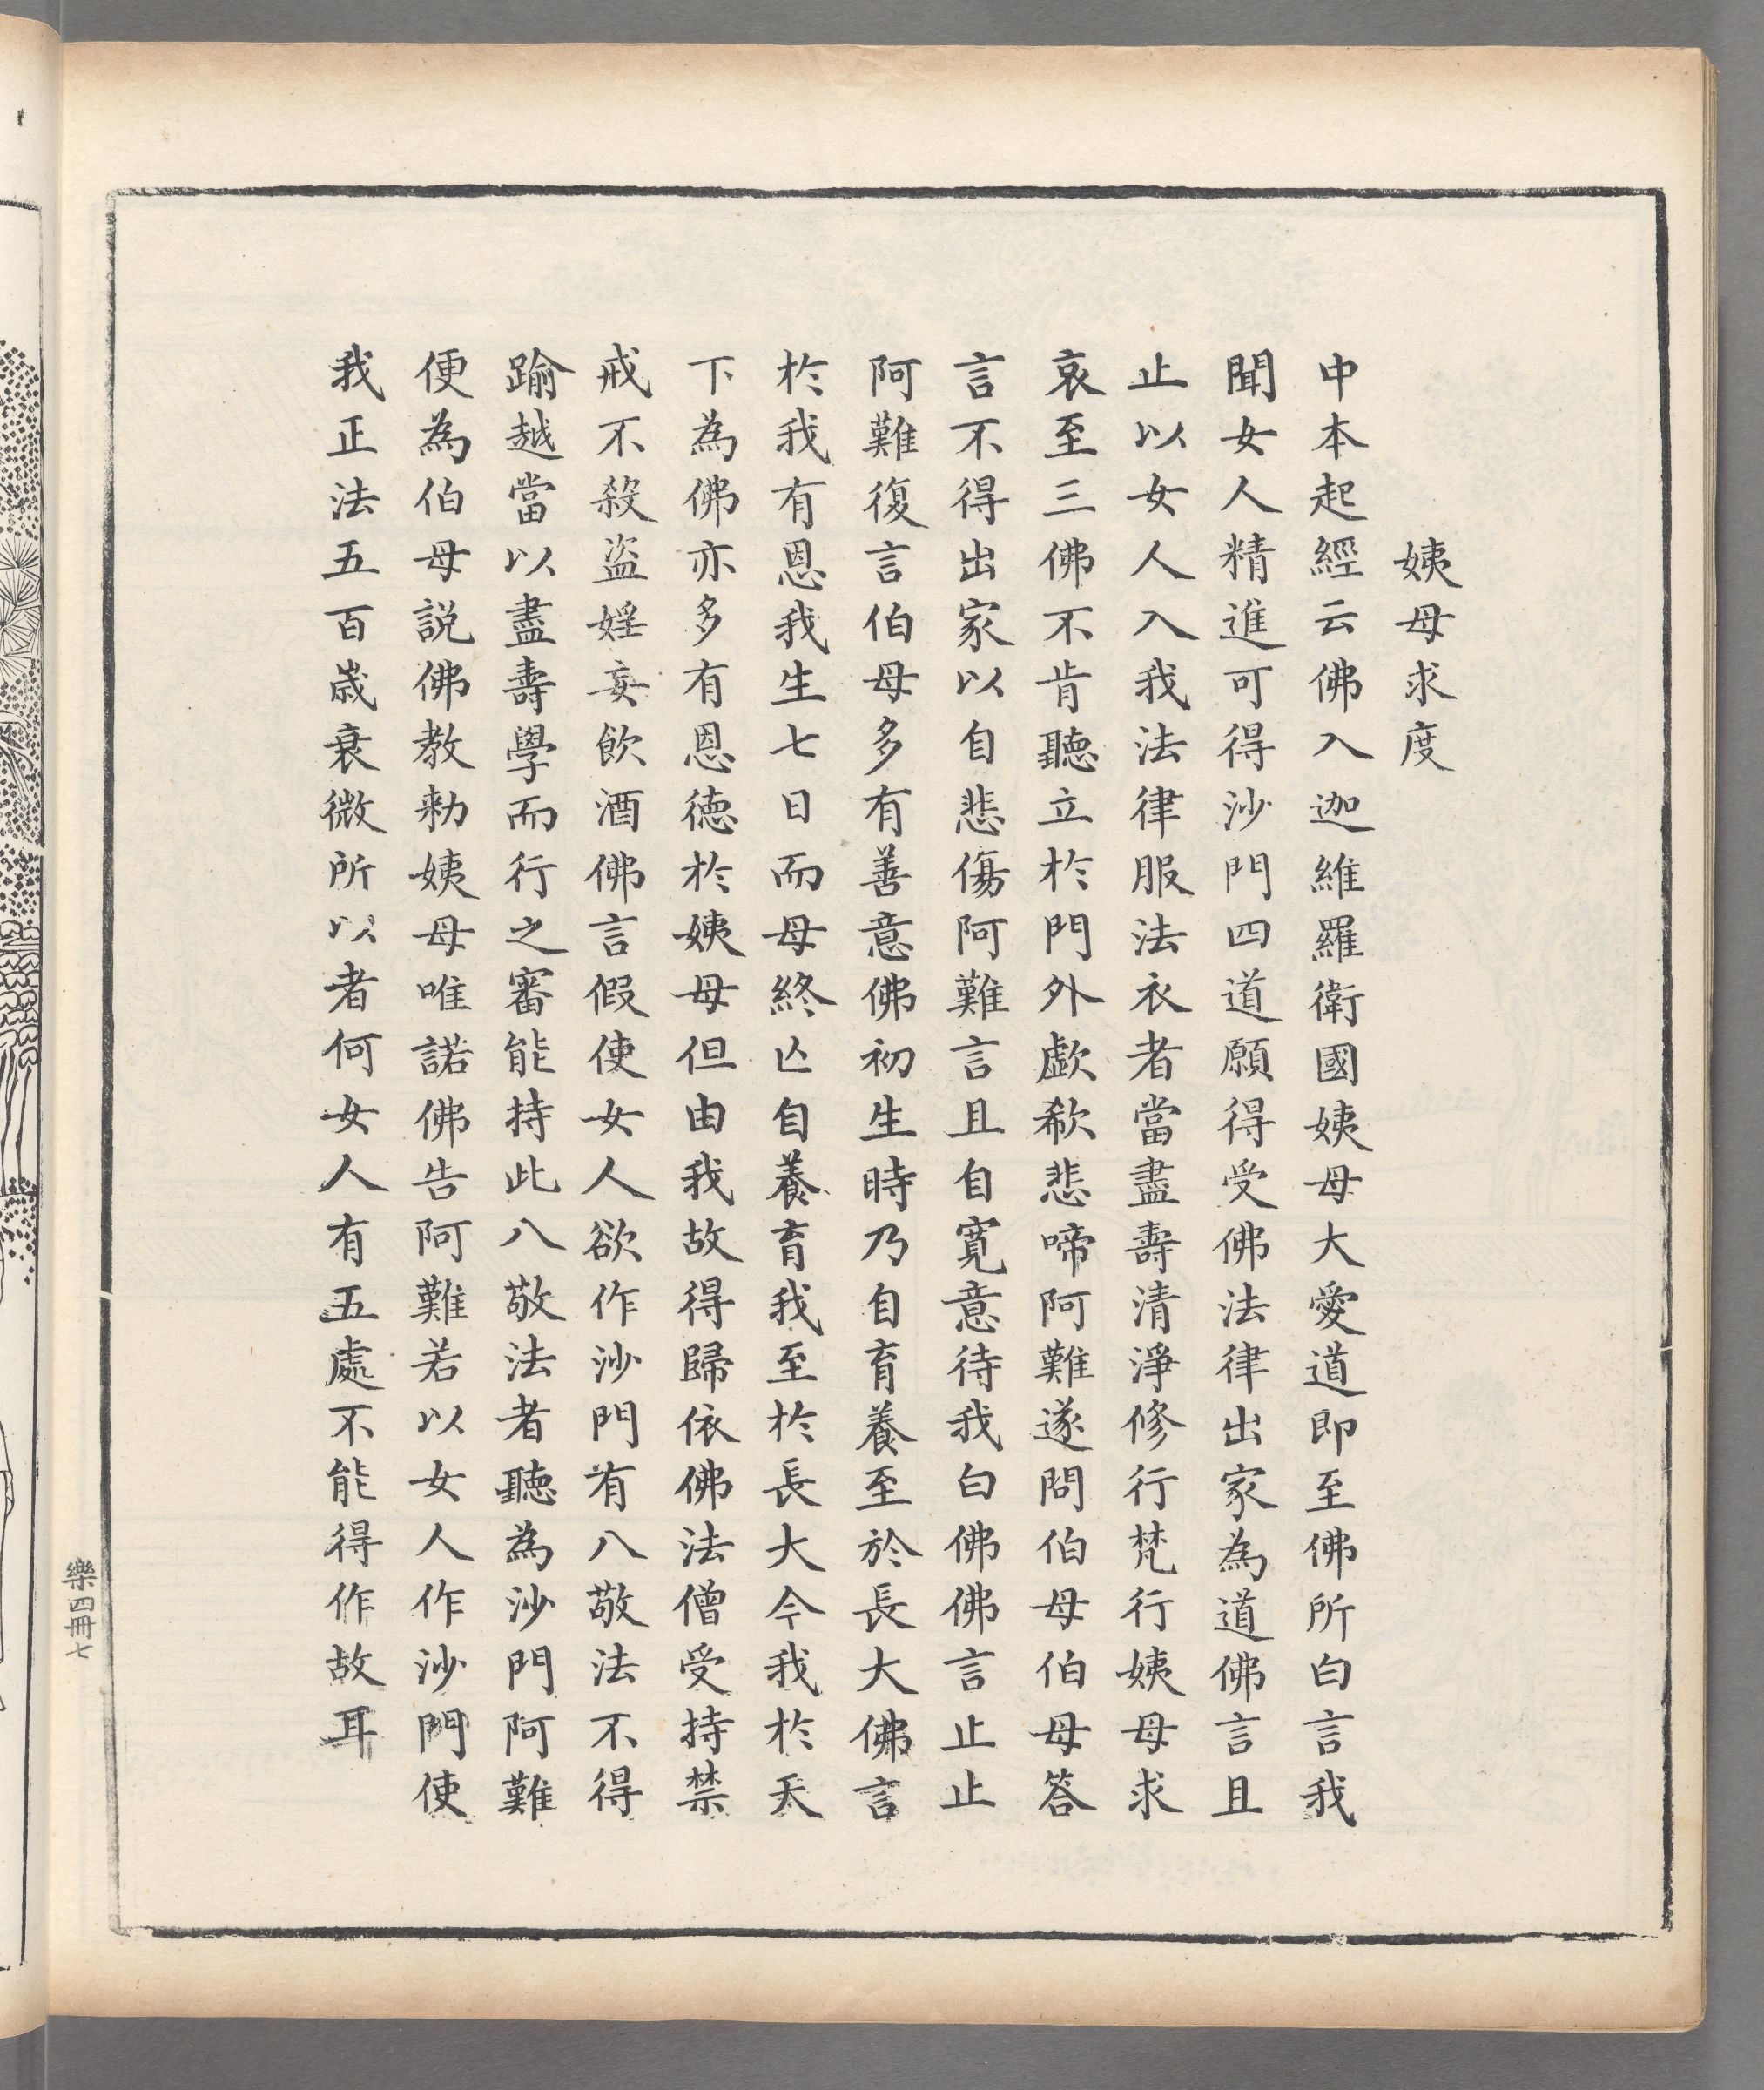 姨母求度
中本起經云佛入迦維羅衛國姨母大愛道即至佛所白言我
聞女人精進可得沙門四道願得受佛法律出家為道佛言且
止以女人入我法律服法衣者當盡壽清淨修行梵行姨母求
哀至三佛不肯聽立於門外歔欷悲啼阿難遂問伯母伯母答
言不得出家以自悲傷阿難言且自寬意待我白佛佛言止止
阿難復言伯母多有善意佛初生時乃自育養至於長大佛言
於我有恩我生七日而母終亡自養育我至於長大今我於天
下為佛亦多有恩德於姨母但由我故得歸依佛法僧受持禁
戒不殺盜婬妄飲酒佛言假使女人欲作沙門有八敬法不得
踰越當以盡壽學而行之審能持此八敬法者聽為沙門阿難
便為伯母說佛教勑姨母唯諾佛告阿難若以女人作沙門使
我正法五百歲衰微所以者何女人有五處不能得作故耳
樂四冊七